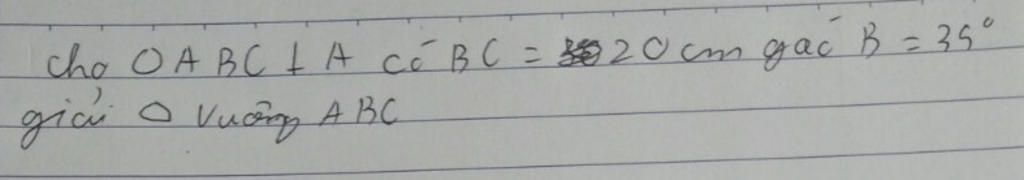 cho △ABC ⊥ A có BC = 20 cm góc B = 35°
giải △ vuông ABC